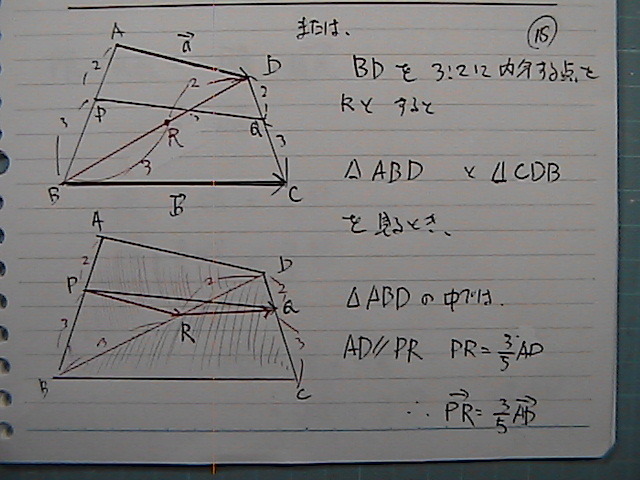 または、
⑮
BDを 3:2に内分する点を
Rとすると
△ABD と △CDB
を見るとき、
△ABDの中では、
AD//PR PR=3/5AD
∴ PR→=3/5AB→
A
a→
D
2
P
2
2
3
R
3
Q
3
3
B
b→
C
A
D
2
P
2
2
Q
3
3
R
3
B
C